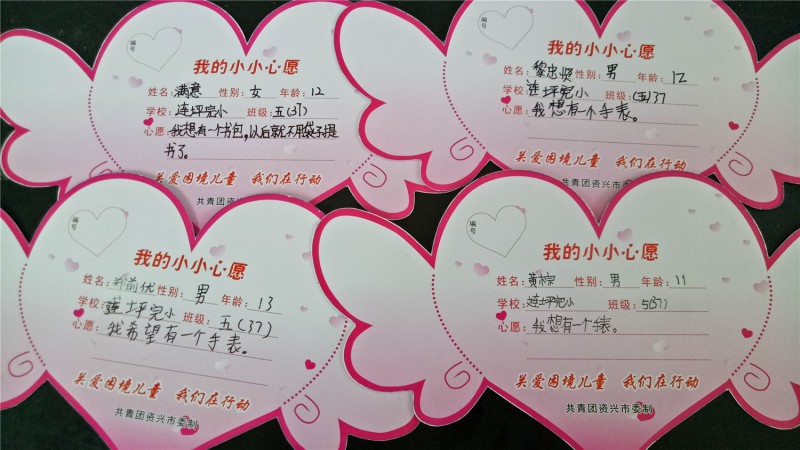 编号
我的小小心愿
姓名: 满意 性别: 女 年龄: 12
学校: 连坪完小 班级: 五(37)
心愿: 我想有一个书包,以后就不用袋子提
书了。
关爱困境儿童 我们在行动
共青团资兴市委制
编号
我的小小心愿
姓名: 黎忠 性别: 男 年龄: 12
学校: 连坪完小 班级: (五)37
心愿: 我想有一个手表。
关爱困境儿童 我们在行动
共青团资兴市委制
编号
我的小小心愿
姓名: 前优 性别: 男 年龄: 13
学校: 连坪完小 班级: 五(37)
心愿: 我希望有一个手表。
关爱困境儿童 我们在行动
共青团资兴市委制
编号
我的小小心愿
姓名: 黄 性别: 男 年龄: 11
学校: 连坪完小 班级: 5(37)
心愿: 我想有一个手表。
关爱困境儿童 我们在行动
共青团资兴市委制